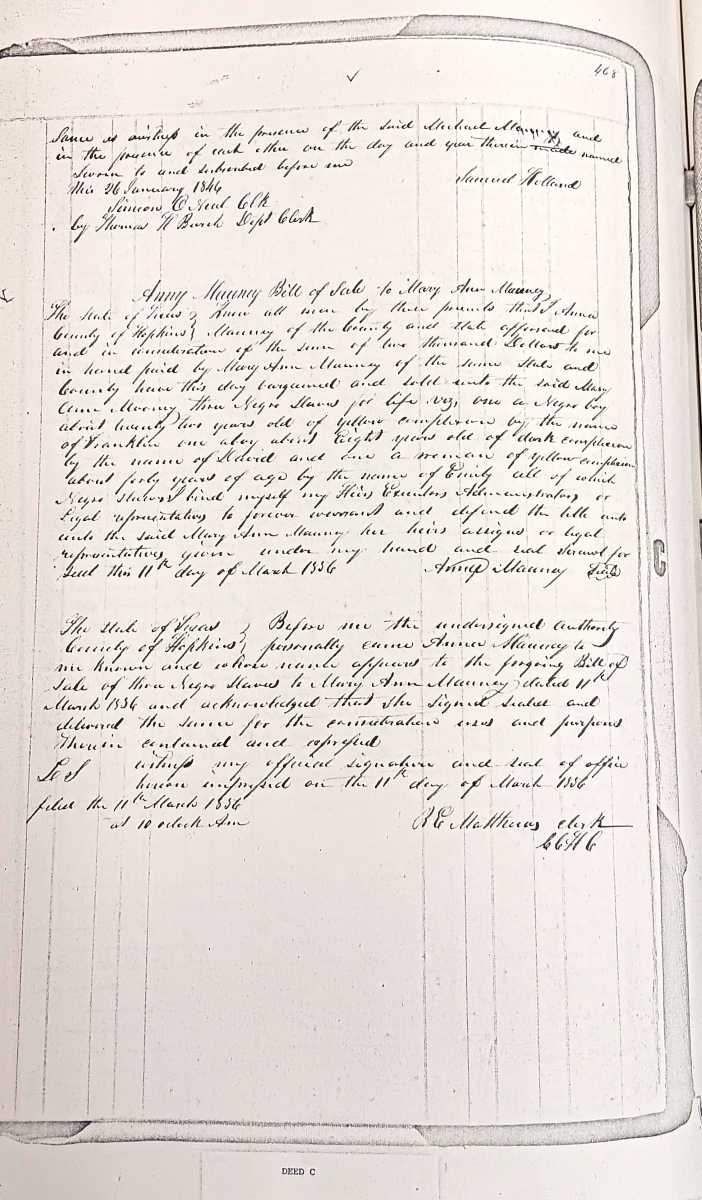 468
Same as witness in the presence of the said Michael Mauney and
in the presence of each other on the day and year therein made named
Sworn to and subscribed before me
this 26 January 1846 Samuel Holland
Simeon O Neal Clk
by Thomas H Burch Dept Clerk
Anny Mauney Bill of Sale to Mary Ann Mauney
The State of Texas } Know all men by these presents that I Anna
County of Hopkins } Mauney of the County and State afforsaid for
and in consideration of the sum of two thousand Dollars to me
in hand paid by Mary Ann Mauney of the same State and
County have this day bargained and sold unto the said Mary
Ann Mooney three Negro Slaves for life viz, one a Negro boy
about twenty two years old of yellow complexion by the name
of Franklin one a boy about Eight years old of dark complexion
by the name of David and one a woman of yellow complexion
about forty years of age by the name of Emily all of which
Negro slaves I bind myself my Heirs Executors Administrators or
Legal representatives to forever warrant and defend the title unto
unto the said Mary Ann Mauney her heirs assigns or legal
representatives given under my hand and seal Scrawl for
seal this 11th day of March 1856 Anna Mauney Seal
The State of Texas } Before me the undersigned authority
County of Hopkins } personally came Anna Mauney to
me known and whose name appears to the forgoing Bill of
Sale of three Negro Slaves to Mary Ann Mauney dated 11th
March 1856 and acknowledged that she signed sealed and
delivered the same for the consideration uses and purposes
therein contained and expressed
L S witness my official signature and seal of office
hereon impressed on the 11th day of March 1856
filed the 11th March 1856
at 10 oclock Am R E Matthews Clerk
C C H C
C
DEED C